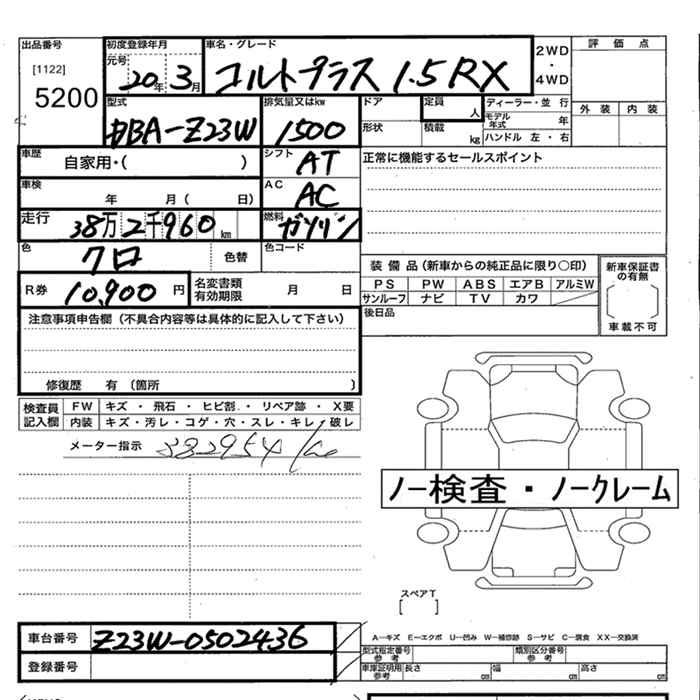 出品番号
[1122]
5200
初度登録年月
元号
20年3月
車名・グレード
コルトプラス 1.5RX
2WD
・
4WD
評価点
外装 内装
型式
DBA-Z23W
排気量又はkw
1500
ドア
形状
定員
人
積載
kg
ディーラー・並行
モデル年式 年
ハンドル 左・右
車歴
自家用・( )
シフト
AT
正常に機能するセールスポイント
車検
年 月( 日)
AC
AC
走行
38万2千960km
燃料
ガソリン
色
クロ
色替
色コード
R券
10,900円
名変書類
有効期限
月 日
装備品(新車からの純正品に限り○印)
PS PW ABS エアB アルミW
サンルーフ ナビ TV カワ
後日品
新車保証書
の有無
車載不可
注意事項申告欄(不具合内容等は具体的に記入して下さい)
修復歴 有(箇所 )
検査員
記入欄
FW キズ・飛石・ヒビ割・リペア跡・X要
内装 キズ・汚レ・コゲ・穴・スレ・キレ・破レ
メーター指示
382954km
ノー検査・ノークレーム
スペアT
[ ]
車台番号
Z23W-0502436
登録番号
A―キズ E―エクボ U―凹み W―補修跡 S―サビ C―腐食 XX―交換済
型式指定番号
参考
類別区分番号
参考
車庫証明用
参考
長さ cm 幅 cm 高さ cm